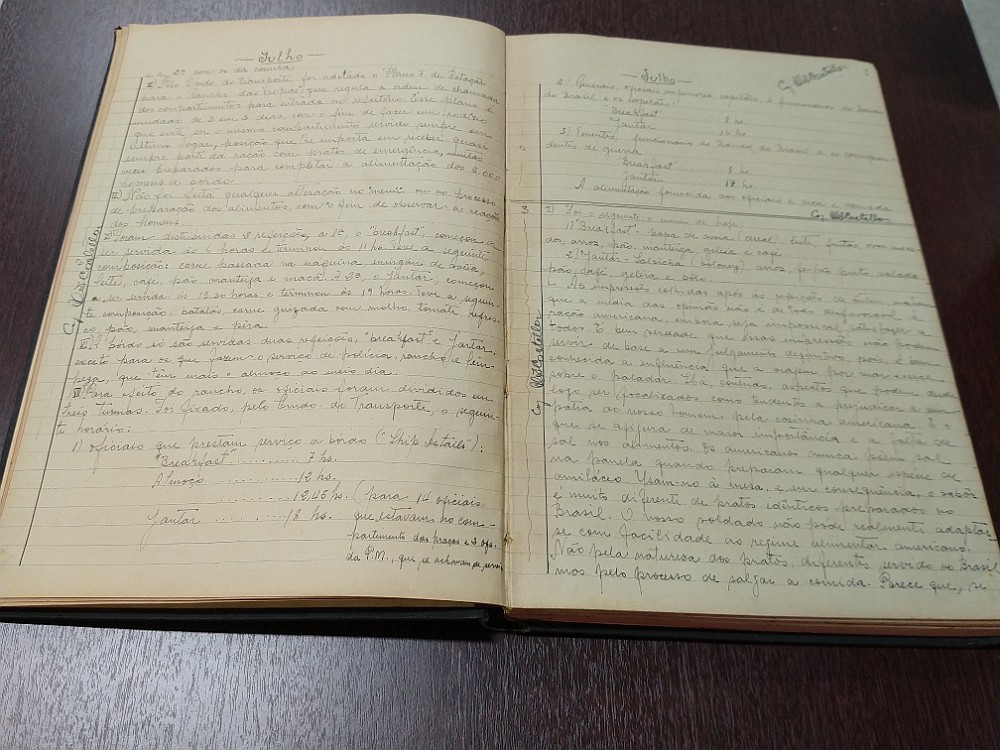 — Julho —
2º com os da cozinha.
I) Pelo Comdo de Transporte foi adotado o "Plano F de Rotação
para o rancho das tropas" que regula a ordem de chamada
dos compartimentos para entrada no refeitório. Esse plano é
mudado de 3 em 3 dias com o fim de fazer um rodízio
que evite ser o mesmo compartimento servido sempre em
último logar, posição que importa em receber quasi
sempre parte da ração com prato de emergência, muitas
vezes preparados para completar a alimentação dos 6.000
homens a bordo.
II) Não foi feita qualquer alteração no "menú" ou no processo
de preparação dos alimentos, com o fim de observar a reação
dos homens.
Foram distribuidas 2 refeições, a 1ª, o "breakfast", começou a
ser servida às 6 horas e terminou às 11 hs. Teve a seguinte
composição: carne passada na maquina, mingau de aveia,
leite, café, pão, manteiga e maçã. A 2ª, o jantar, começou
a ser servida às 15.30 horas e terminou às 19 horas. Teve a seguin-
te composição: batatas, carne guizada com molho, tomate, refres-
co, pão, manteiga e pera.
A bordo só são servidas duas refeições, "breakfast" e jantar,
exceto para os que fazem o serviço de polícia, rancho e lim-
peza, que têm mais o almoço ao meio dia.
Para efeito do rancho, os oficiais foram divididos em
três turmas. Foi fixado, pelo Comdo. de Transporte, o seguin-
te horário:
1) oficiais que prestam serviço a bordo ("Ship details"):
"Breakfast" .......... 7 hs.
Almoço ............ 12 hs.
............ 12,45 hs. (para 14 oficiais
Jantar ............ 18 hs. que estavam no com-
partimento dos praças e 3 ofs.
da P.M., que se achavam de serviço
— Julho —
2
2) Generais, oficiais superiores, capitães, e funcionários do Banco
do Brasil e os capelães:
Breakfast 8 hs.
Jantar 16 hs.
3) Tenentes, funcionários do Banco do Brasil e os correspon-
dentes de guerra:
Breakfast 8 hs.
Jantar 17 hs.
A alimentação fornecida aos oficiais é rica e variada.
3
I) Foi o seguinte o menu de hoje:
1) "Breakfast" - papa de aveia (cereal), leite, frutas, ovo
arroz, pão, manteiga, geleia e café.
2) Jantar - Salsicha (boloney), arroz, feijão preto, salada
pão, café, geleia e bôlo.
As impressões colhidas após às refeições de ontem,
que a média das opiniões não é de todo desfavorável à
ração americana, embora seja impossível satisfazer a
todos. É bem verdade que essas impressões não podem
servir de base a um julgamento definitivo pois é bem
conhecida a influência que a viagem por mar exerce
sobre o paladar. Há, contudo, aspectos que podem desde
logo ser focalizados como tendente a prejudicar a sim-
patia do nosso homem pela cozinha americana. E o
que se afigura de maior importância é a falta de
sal nos alimentos. Os americanos nunca põem sal
na panela quando preparam qualquer espécie de
amiláceo. Usam-no à mesa, e, em consequência, o sabor
é muito diferente de pratos idênticos preparados no
Brasil. O nosso soldado não pode realmente adaptar-
se com facilidade ao regime alimentar americano.
Não pela natureza dos pratos, diferentes servido no Brasil
mas pelo processo de salgar a comida. Parece que, se